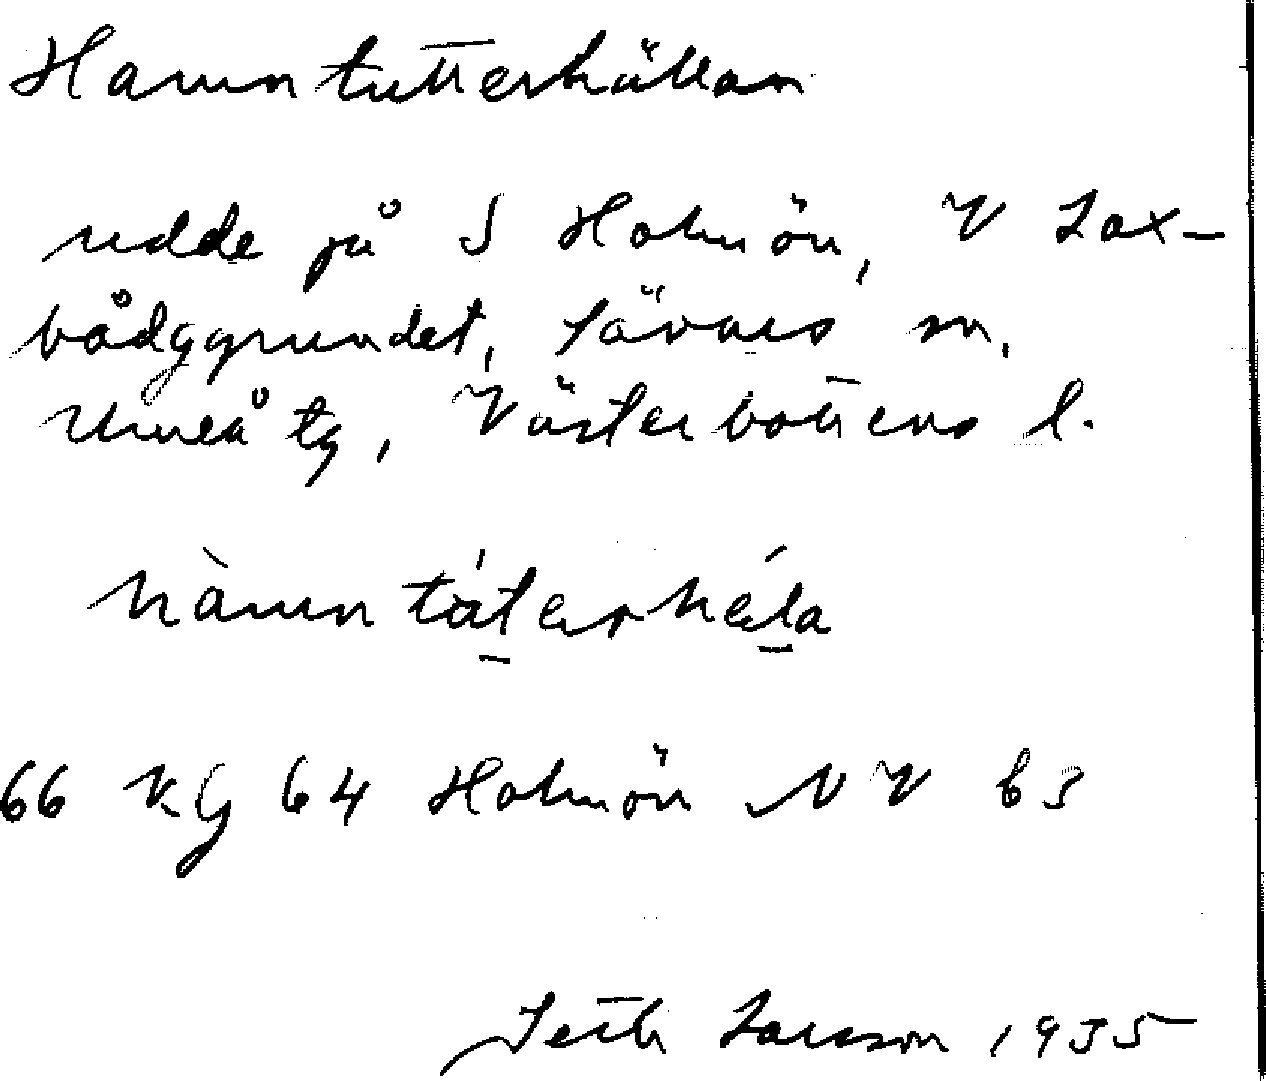 Hamntutterhällan
udde på S Holmön, V Lax-
bådggrundet, Sävars sn,
Umeå tg, Västerbottens l.
hàmntátərhéla
66 KG 64 Holmön NV b3
Seth Larsson 1935